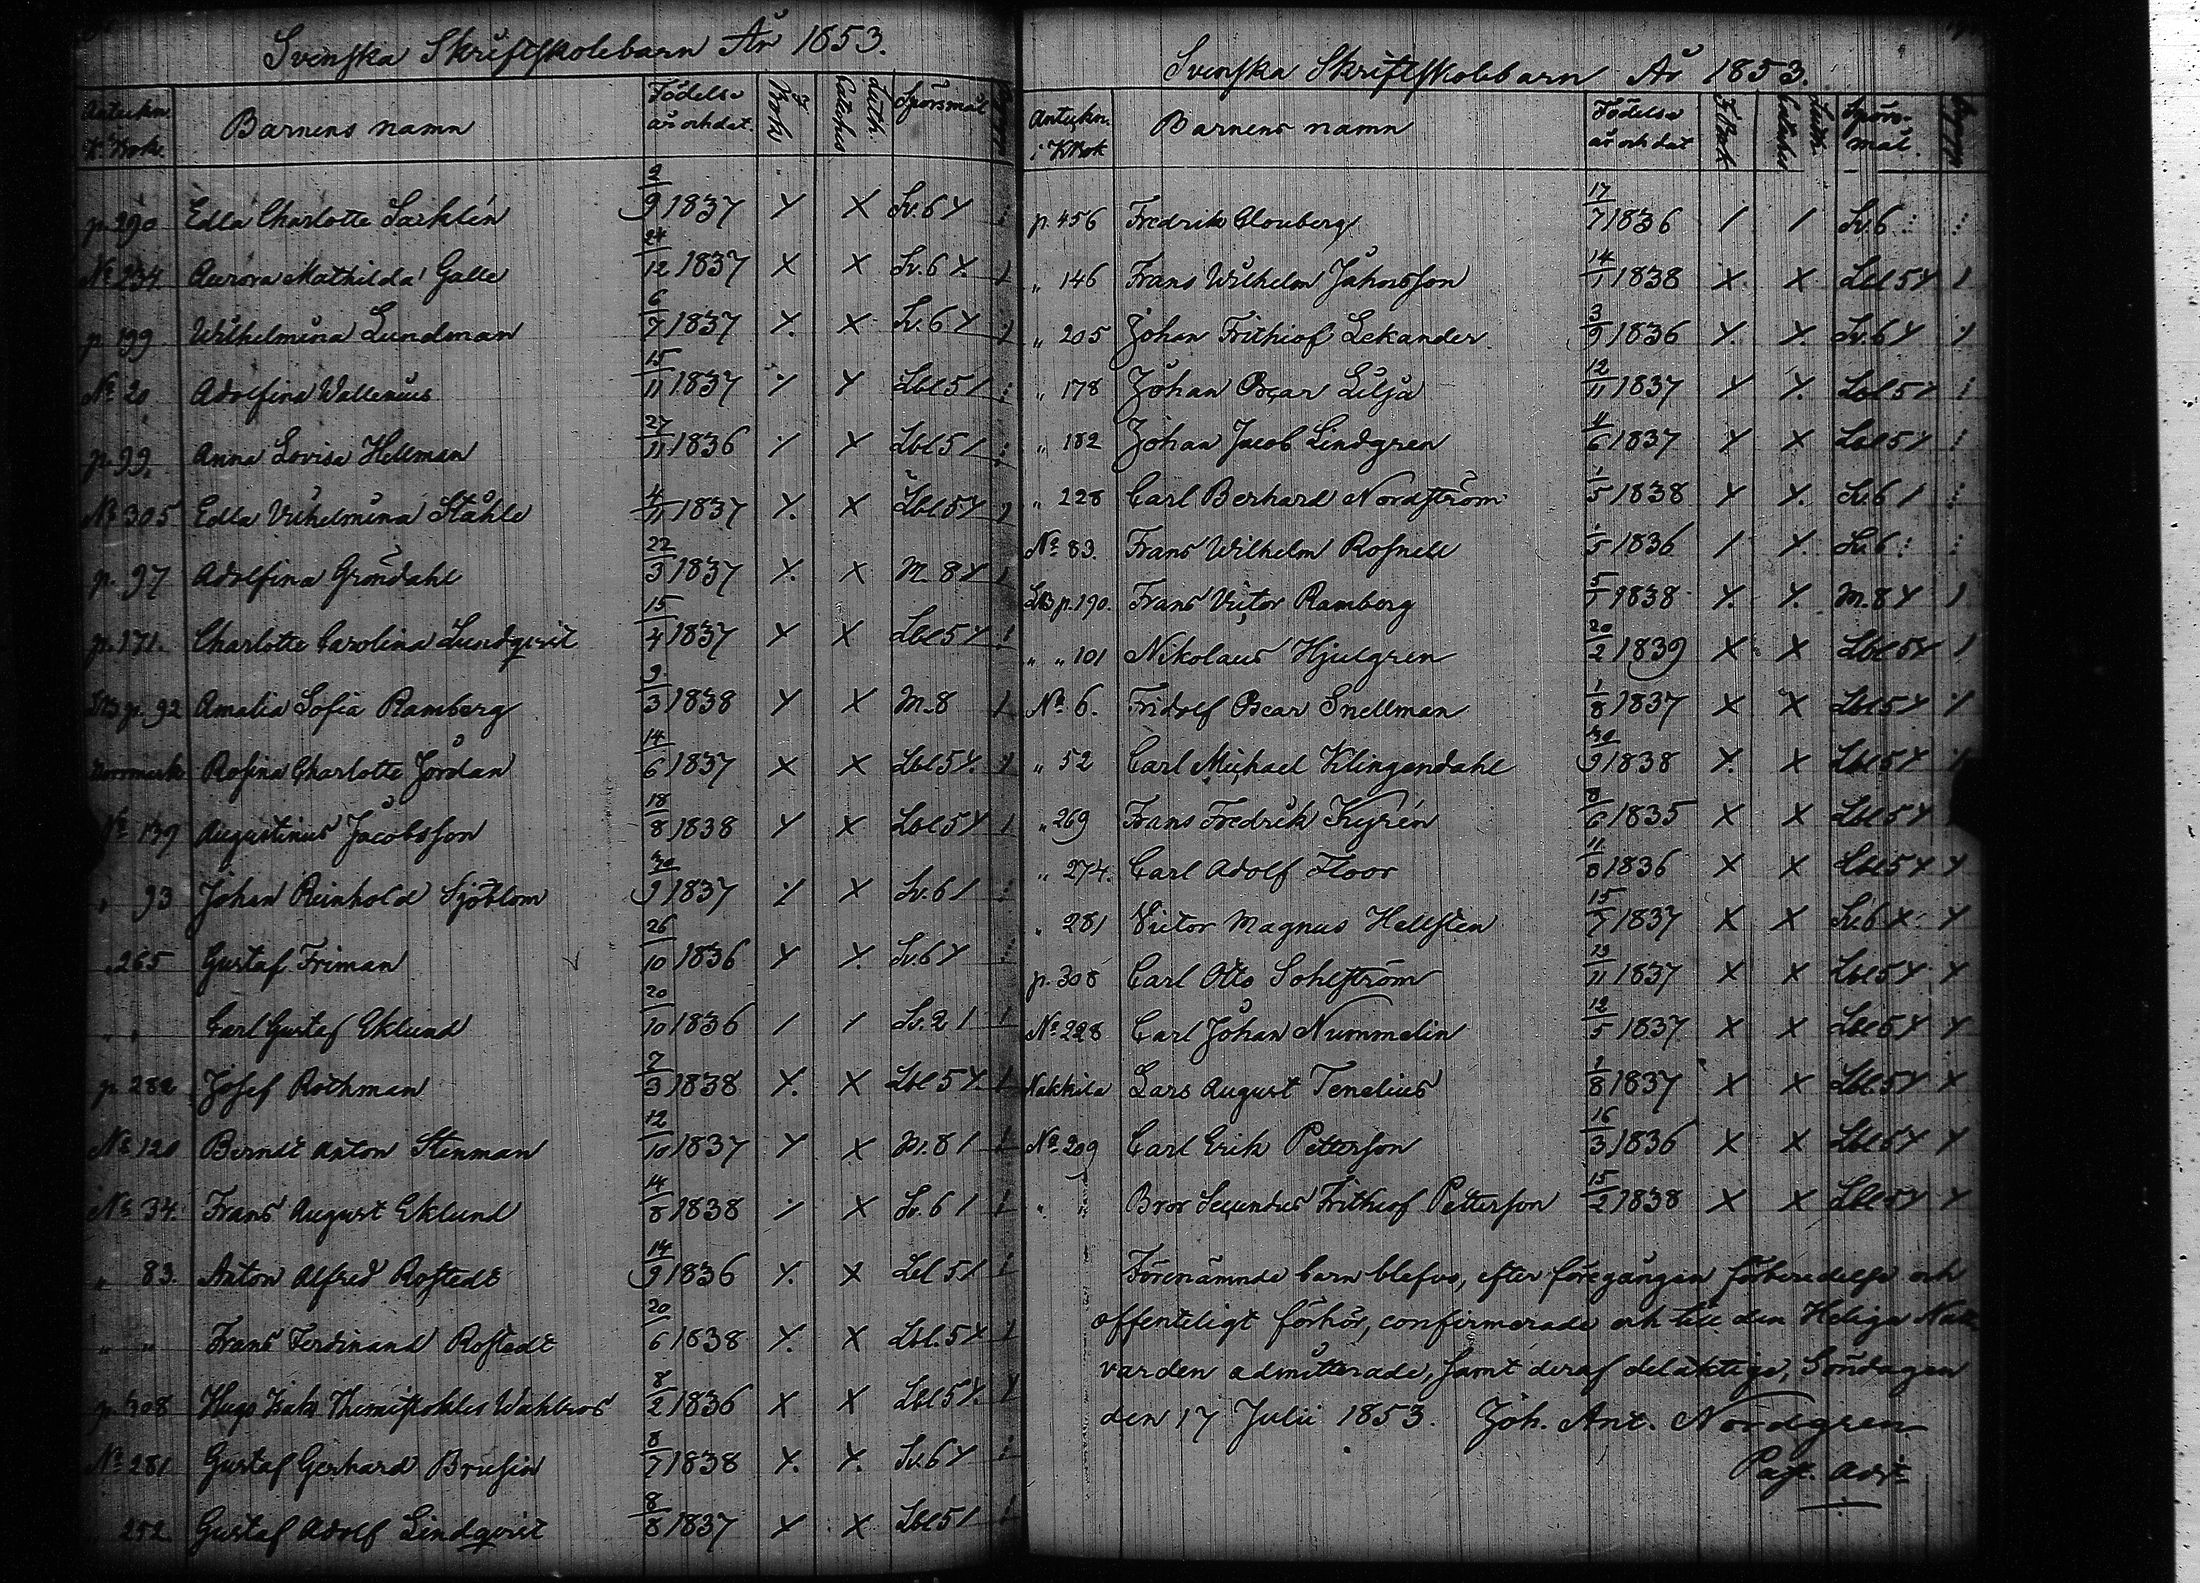 Svenska Skriftskolebarn År 1853.
Anteckn. i K.Bok. Barnens namn Födelse år och dat. I Bok Luth. Cateches Spörsmål
p. 290 Edla Charlotte Sachlén 2/9 1837 Sv. 6
No 234 Aurora Mathilda Galle 24/12 1837 Sv. 6
p 199 Wilhelmina Lundman 6/7 1837 Sv. 6
No 20 Adolfina Wallenius 15/11 1837 Lbl 5
p. 99. Anna Lovisa Hellman 27/11 1836 Lbl 5
No 305 Edla Vilhelmina Ståhle 4/11 1837 Lbl 5
p. 97 Adolfina Gröndahl 22/3 1837 M. 8
p. 171. Charlotte Carolina Lundqvist 15/4 1837 Lbl 5
LB p. 92 Amalia Sofia Ramberg 9/3 1838 M. 8
Norrmark Rosina Charlotte Jordan 14/6 1837 Lbl 5
No 139 Augustinus Jacobsson 18/8 1838 Lbl 5
" 93 Johan Reinhold Sjöblom 30/9 1837 Sv. 6
" 265 Gustaf Friman 26/10 1836 Sv. 6
" " Carl Gustaf Eklund 20/10 1836 Sv. 2
p 282 Josef Rothman 7/3 1838 Lbl 5
No 120 Berndt Anton Stenman 12/10 1837 M. 8
No 34. Frans August Eklund 14/8 1838 Sv. 6
" 83. Anton Alfred Rostedt 14/9 1836 Lbl 5
" " Frans Ferdinand Rostedt 20/6 1838 Lbl. 5
p. 308 Hugo Isak Themistokles Wahlros 8/2 1836 Lbl 5
No 281 Gustaf Gerhard Brusin 8/7 1838 Sv. 6
252. Gustaf Adolf Lindqvist 8/8 1837 Lbl 5
Svenska Skriftskolebarn År 1853.
Anteckn. i K Bok Barnens namn Födelse år och dat I Bok Luth. Cateches Spörsmål
p. 456 Fredrik Clouberg 17/7 1836 Sv. 6
" 146 Frans Wilhelm Jahnsson 14/1 1838 Lbl 5
" 205 Johan Frithiof Lekander 3/9 1836 Sv. 6
" 178 Johan Oscar Lilja 12/11 1837 Lbl 5
" 182 Johan Jacob Lindgren 11/6 1837 Lbl 5
" 228 Carl Berhard Nordström 1/5 1838 Sv. 6
No 83. Frans Wilhelm Rosnell 1/5 1836 Sv. 6
LB p. 190. Frans Victor Ramberg 5/1 1838 M. 8
" " 101 Nikolaus Hjulgren 20/2 1839 Lbl 5
No 6. Fridolf Oscar Snellman 1/8 1837 Lbl 5
" 52 Carl Michael Klingendahl 30/9 1838 Lbl 5
" 269 Frans Fredrik Kyrén 8/6 1835 Lbl 5
" 274. Carl Adolf Floor 11/8 1836 Lbl 5
" 281 Victor Magnus Hellsten 15/7 1837 Sv. 6
p. 308 Carl Otto Sohlström 13/11 1837 Lbl 5
No 228 Carl Johan Nummelin 12/5 1837 Lbl 5
Nakkila Lars August Tenelius 1/8 1837 Lbl. 5
No 209 Carl Erik Petterson 16/3 1836 Lbl 5
" Bror Secundus Frithiof Petterson 15/2 1838 Lbl 5
Förenämnde barn blefvo, efter föregången förberedelse och
offenteligt förhör, confirmerade och till den Heliga Natt
varden admitterade, samt deraf delaktige, Söndagen
den 17 Julii 1853. Joh. Ant. Nordgren
Past. Adj.